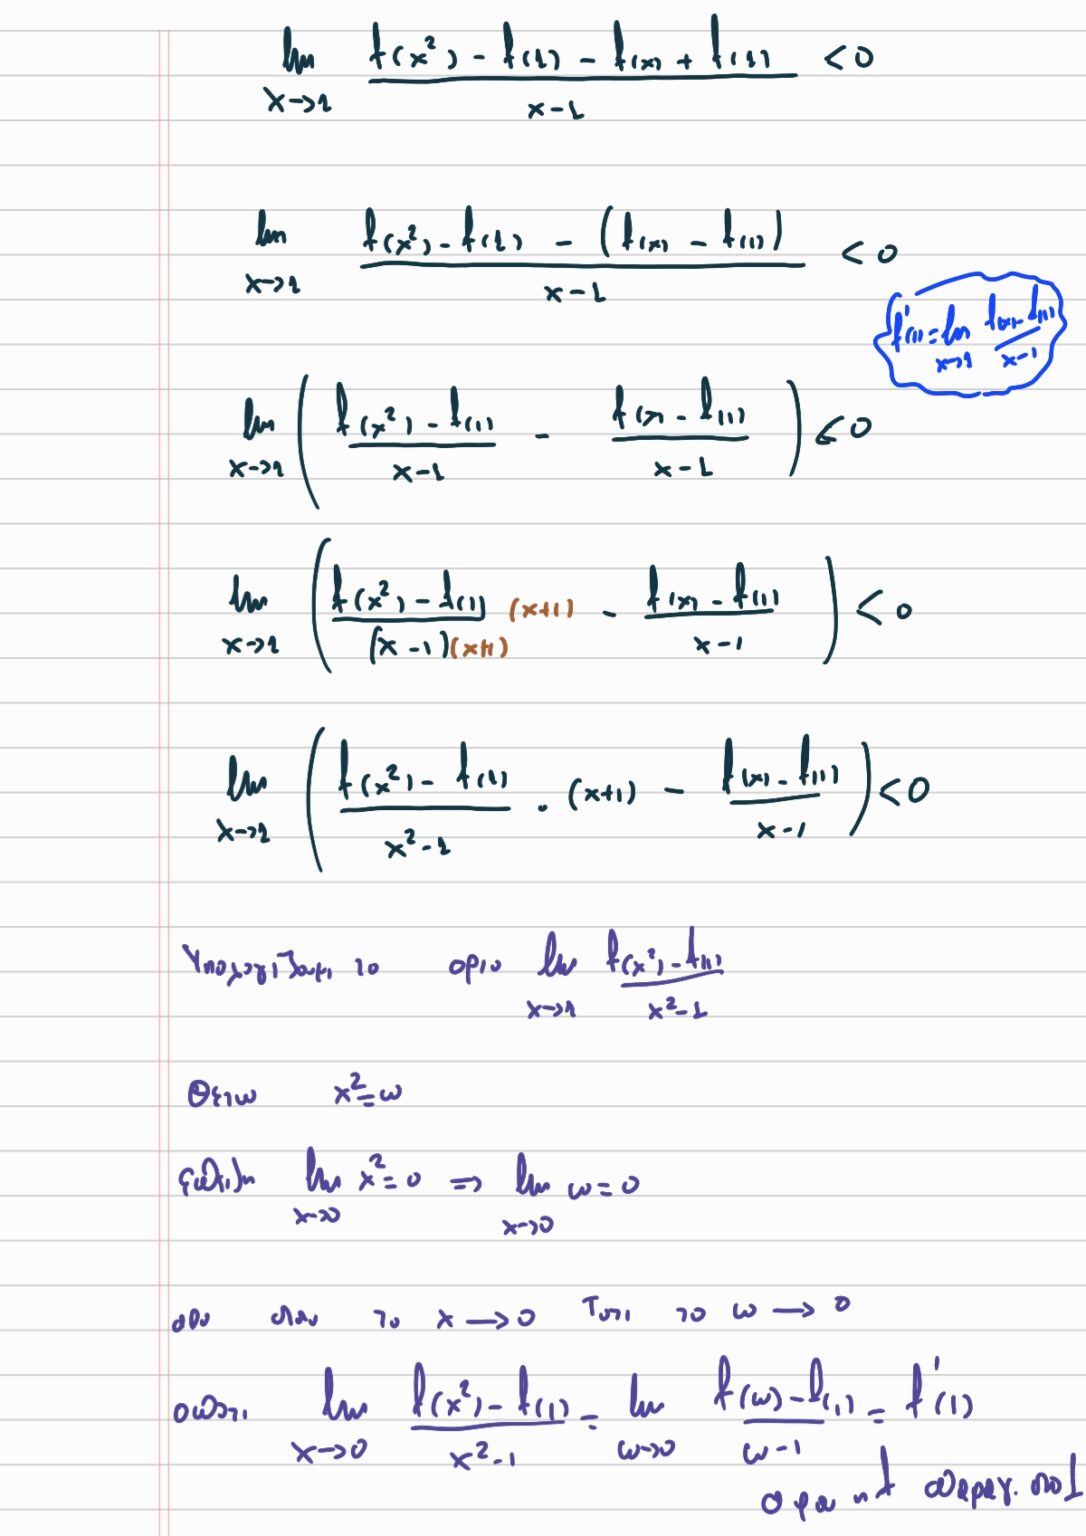 lim x→1 (f(x²) - f(1) - f(x) + f(1)) / (x-1) < 0
lim x→1 (f(x²) - f(1) - (f(x) - f(1))) / (x-1) < 0
f'(1) = lim x→1 (f(x) - f(1)) / (x-1)
lim x→1 ( (f(x²) - f(1)) / (x-1) - (f(x) - f(1)) / (x-1) ) < 0
lim x→1 ( (f(x²) - f(1)) (x+1) / ((x-1)(x+1)) - (f(x) - f(1)) / (x-1) ) < 0
lim x→1 ( (f(x²) - f(1)) / (x²-1) · (x+1) - (f(x) - f(1)) / (x-1) ) < 0
Υπολογίζουμε το οριο lim x→1 (f(x²) - f(1)) / (x²-1)
Θετω x² = ω
lim x→0 x² = 0 ⇒ lim x→0 ω = 0
οταν το x → 0 Τοτε το ω → 0
ωστε lim x→0 (f(x²) - f(1)) / (x²-1) = lim ω→0 (f(ω) - f(1)) / (ω-1) = f'(1)
αρα η f παραγ. στο 1